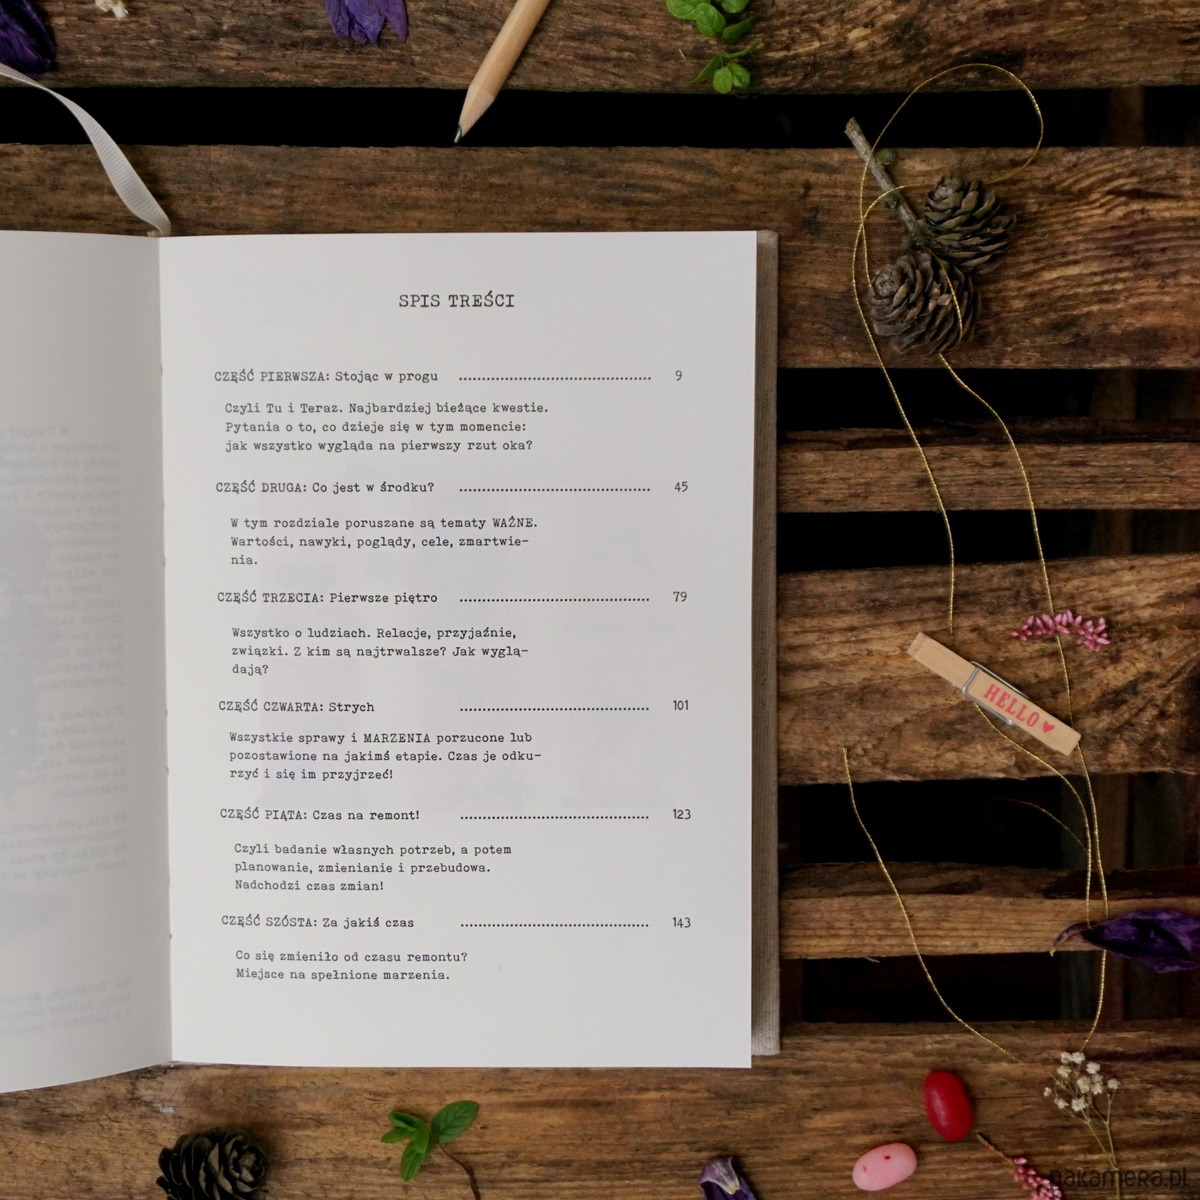 SPIS TREŚCI
CZĘŚĆ PIERWSZA: Stojąc w progu ................................................ 9
Czyli Tu i Teraz. Najbardziej bieżące kwestie.
Pytania o to, co dzieje się w tym momencie:
jak wszystko wygląda na pierwszy rzut oka?
CZĘŚĆ DRUGA: Co jest w środku? ................................................ 45
W tym rozdziale poruszane są tematy WAŻNE.
Wartości, nawyki, poglądy, cele, zmartwie-
nia.
CZĘŚĆ TRZECIA: Pierwsze piętro ................................................ 79
Wszystko o ludziach. Relacje, przyjaźnie,
związki. Z kim są najtrwalsze? Jak wyglą-
dają?
CZĘŚĆ CZWARTA: Strych ................................................ 101
Wszystkie sprawy i MARZENIA porzucone lub
pozostawione na jakimś etapie. Czas je odku-
rzyć i się im przyjrzeć!
CZĘŚĆ PIĄTA: Czas na remont! ................................................ 123
Czyli badanie własnych potrzeb, a potem
planowanie, zmienianie i przebudowa.
Nadchodzi czas zmian!
CZĘŚĆ SZÓSTA: Za jakiś czas ................................................ 143
Co się zmieniło od czasu remontu?
Miejsce na spełnione marzenia.
HELLO ♥
nakamera.pl